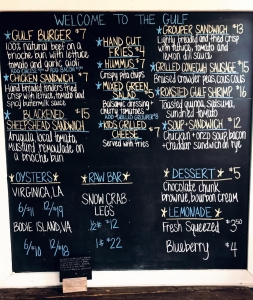 WELCOME TO THE GULF
GULF BURGER *7
100% natural beef on a
brioche bun with lettuce
tomato and garlic aioli
CHICKEN SANDWICH *7
Hand breaded tenders fried
crisp w lettuce, tomato and
spicy buttermilk sauce
BLACKENED *15
SHEEPSHEAD SANDWICH
Arugula, tomato,
mustard remoulade on
a brioche bun
HAND CUT
FRIES *4
HUMMUS *7
Crispy pita chips
MIXED GREEN
SALAD
Balsamic dressing +
cherry tomatoes
ADD GRILLED GROUPER *8
KIDS GRILLED
CHEESE *7
Served with fries
GROUPER SANDWICH *13
Lightly breaded and fried crisp
with lettuce, tomato and
lemon dill sauce
GRILLED CONECUH SAUSAGE *15
ROASTED GULF SHRIMP *16
Toasted quinoa, satsuma,
SOUP + SANDWICH *12
Chicken + orzo soup, bacon
+ cheddar sandwich on rye
OYSTERS
VIRGINICA, LA
6/$11 12/$19
BODIE ISLAND, VA
6/$10 12/$18
RAW BAR
SNOW CRAB
LEGS
½# $12
1# $22
DESSERT *5
Chocolate chunk
brownie, bourbon cream
LEMONADE
Fresh Squeezed $3.50
Blueberry $4